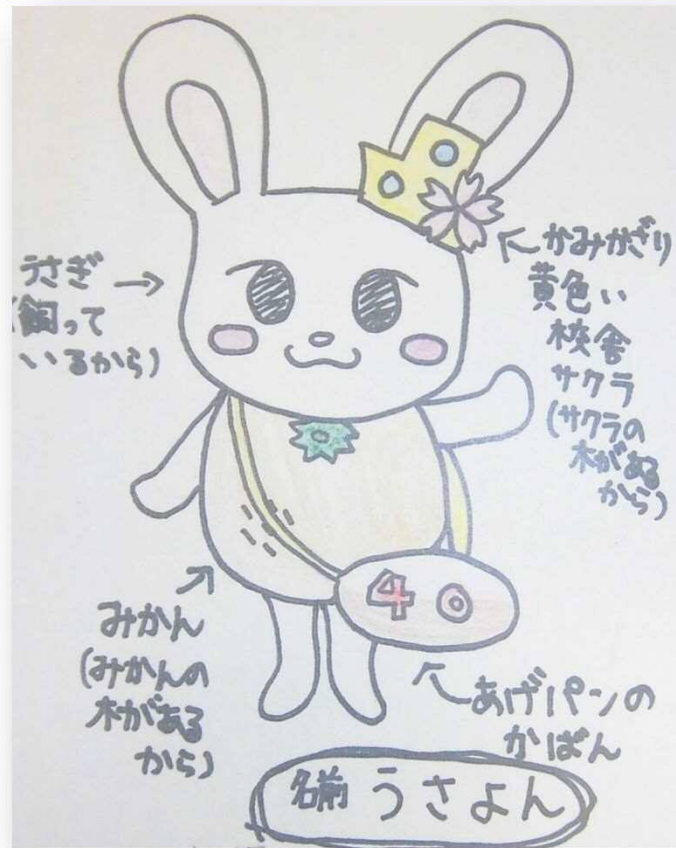 うさぎ
(飼って
いるから)
かみかざり
黄色い
校舎
サクラ
(サクラの
木がある
から)
みかん
(みかんの
木がある
から)
40
あげパンの
かばん
名前 うさよん